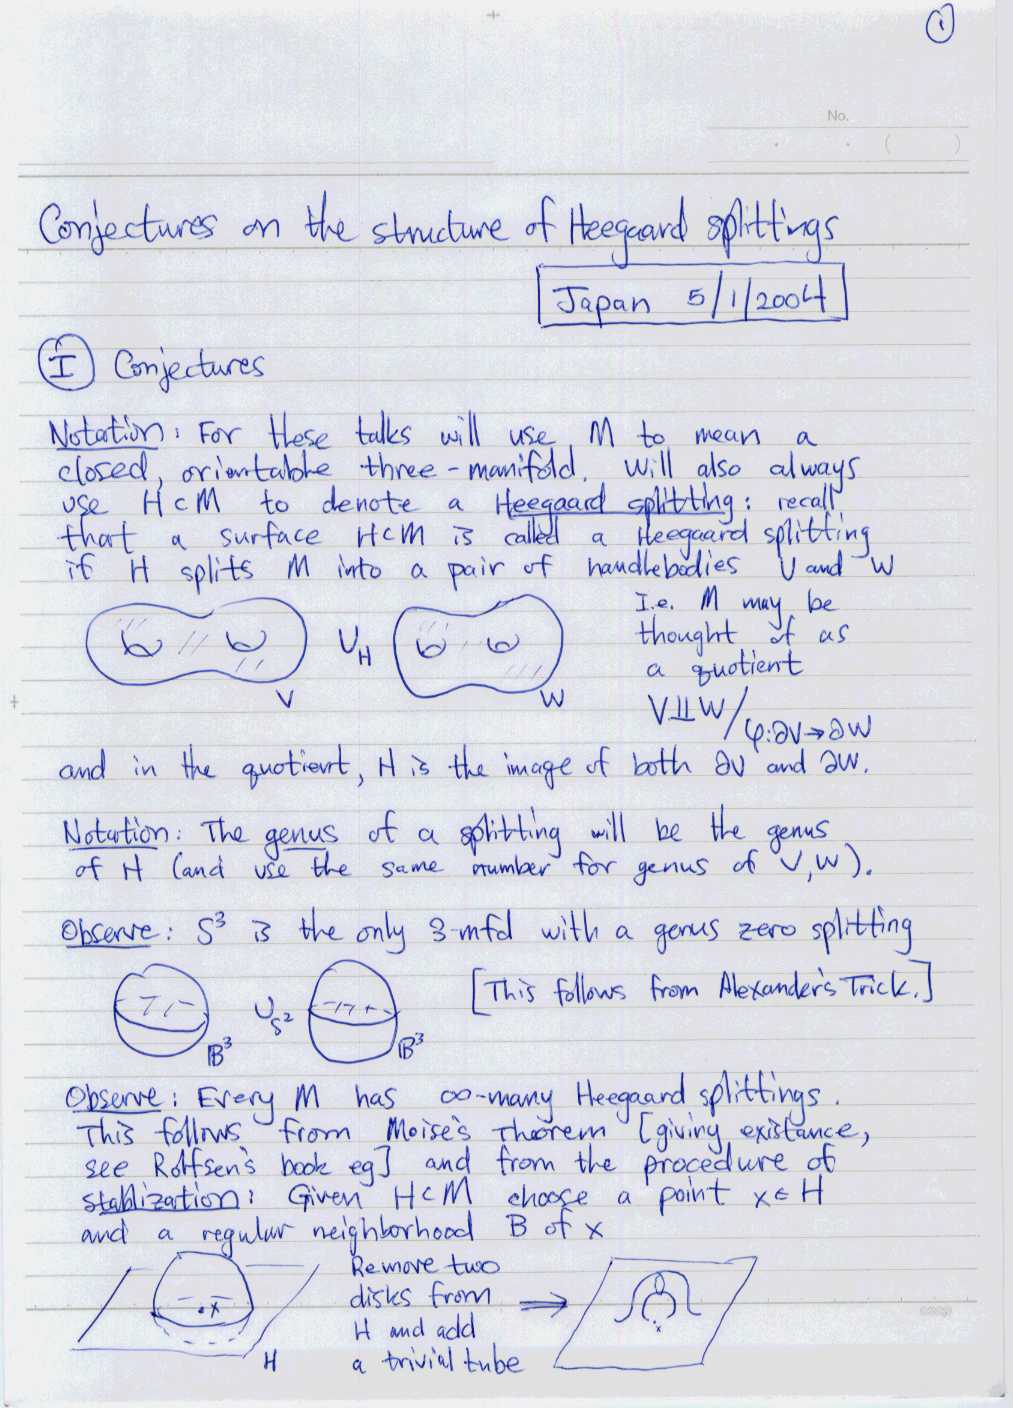 1
No.
( )
Conjectures on the structure of Heegaard splittings
Japan 5/1/2004
I Conjectures
Notation: For these talks will use M to mean a
closed, orientable three-manifold. Will also always
use H⊂M to denote a Heegaard splitting: recall
that a surface H⊂M is called a Heegaard splitting
if H splits M into a pair of handlebodies V and W
I.e. M may be
thought of as
a quotient
V ∪H W
V⨿W/φ:∂V→∂W
and in the quotient, H is the image of both ∂V and ∂W.
Notation: The genus of a splitting will be the genus
of H (and use the same number for genus of V,W).
Observe: S³ is the only 3-mfd with a genus zero splitting
[This follows from Alexander's Trick.]
B³ ∪S² B³
Observe: Every M has ∞-many Heegaard splittings.
This follows from Moise's Theorem [giving existance,
see Rolfsen's book eg] and from the procedure of
stablization: Given H⊂M choose a point x∈H
and a regular neighborhood B of x
Remove two
disks from
H and add
a trivial tube
⇒
x
H
x